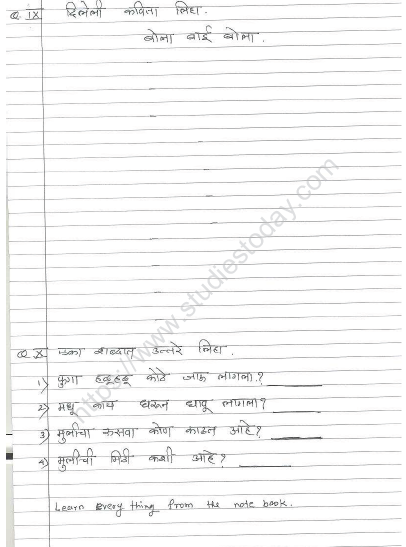 Q. IX दिलेली कविता लिहा.
बोला बाई बोला.
Q. X एका शब्दात उत्तरे लिहा.
1) फुगा हळूहळू कोठे जाऊ लागला?
2) मधू काय धरून धावू लागला?
3) मुलीचा रुसवा कोण काढत आहे?
4) मुलीची मिठी कशी आहे?
Learn Every thing from the note book.
https://www.studiestoday.com